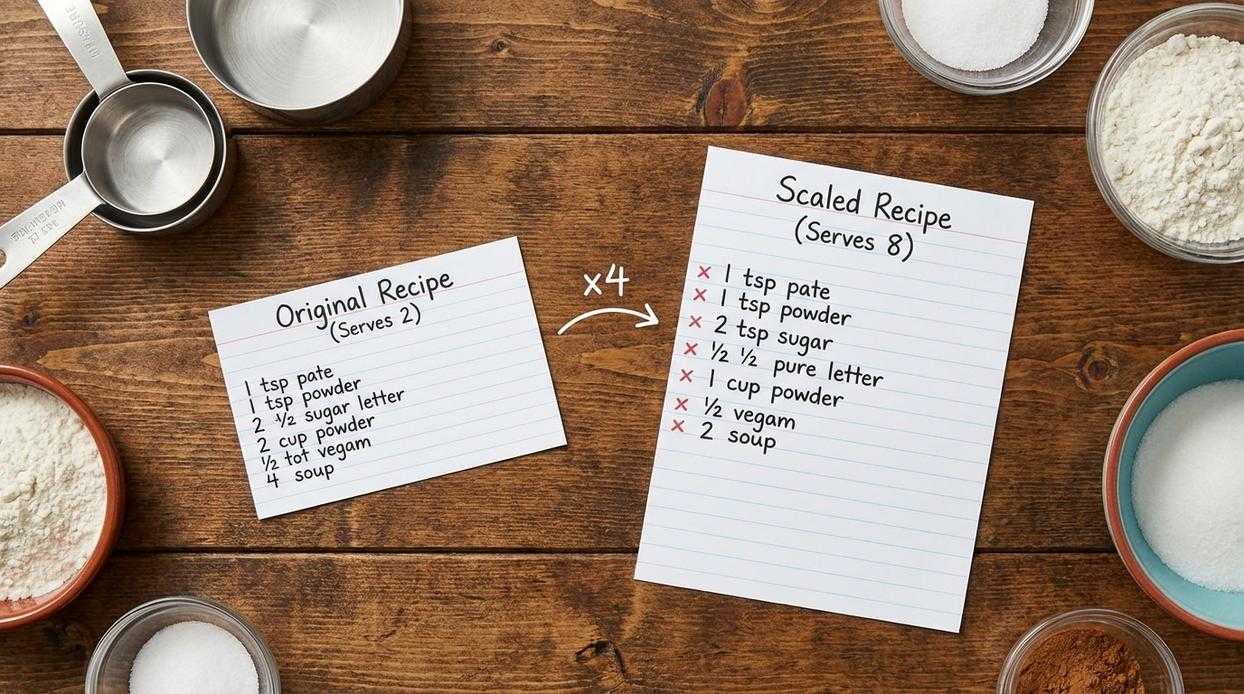 Original Recipe
(Serves 2)
1 tsp pate
1 tsp powder
2 ½ sugar letter
2 cup powder
½ tot vegam
4 soup
x4
Scaled Recipe
(Serves 8)
× 1 tsp pate
× 1 tsp powder
× 2 tsp sugar
× ½ ½ pure letter
× 1 cup powder
× ½ vegam
× 2 soup